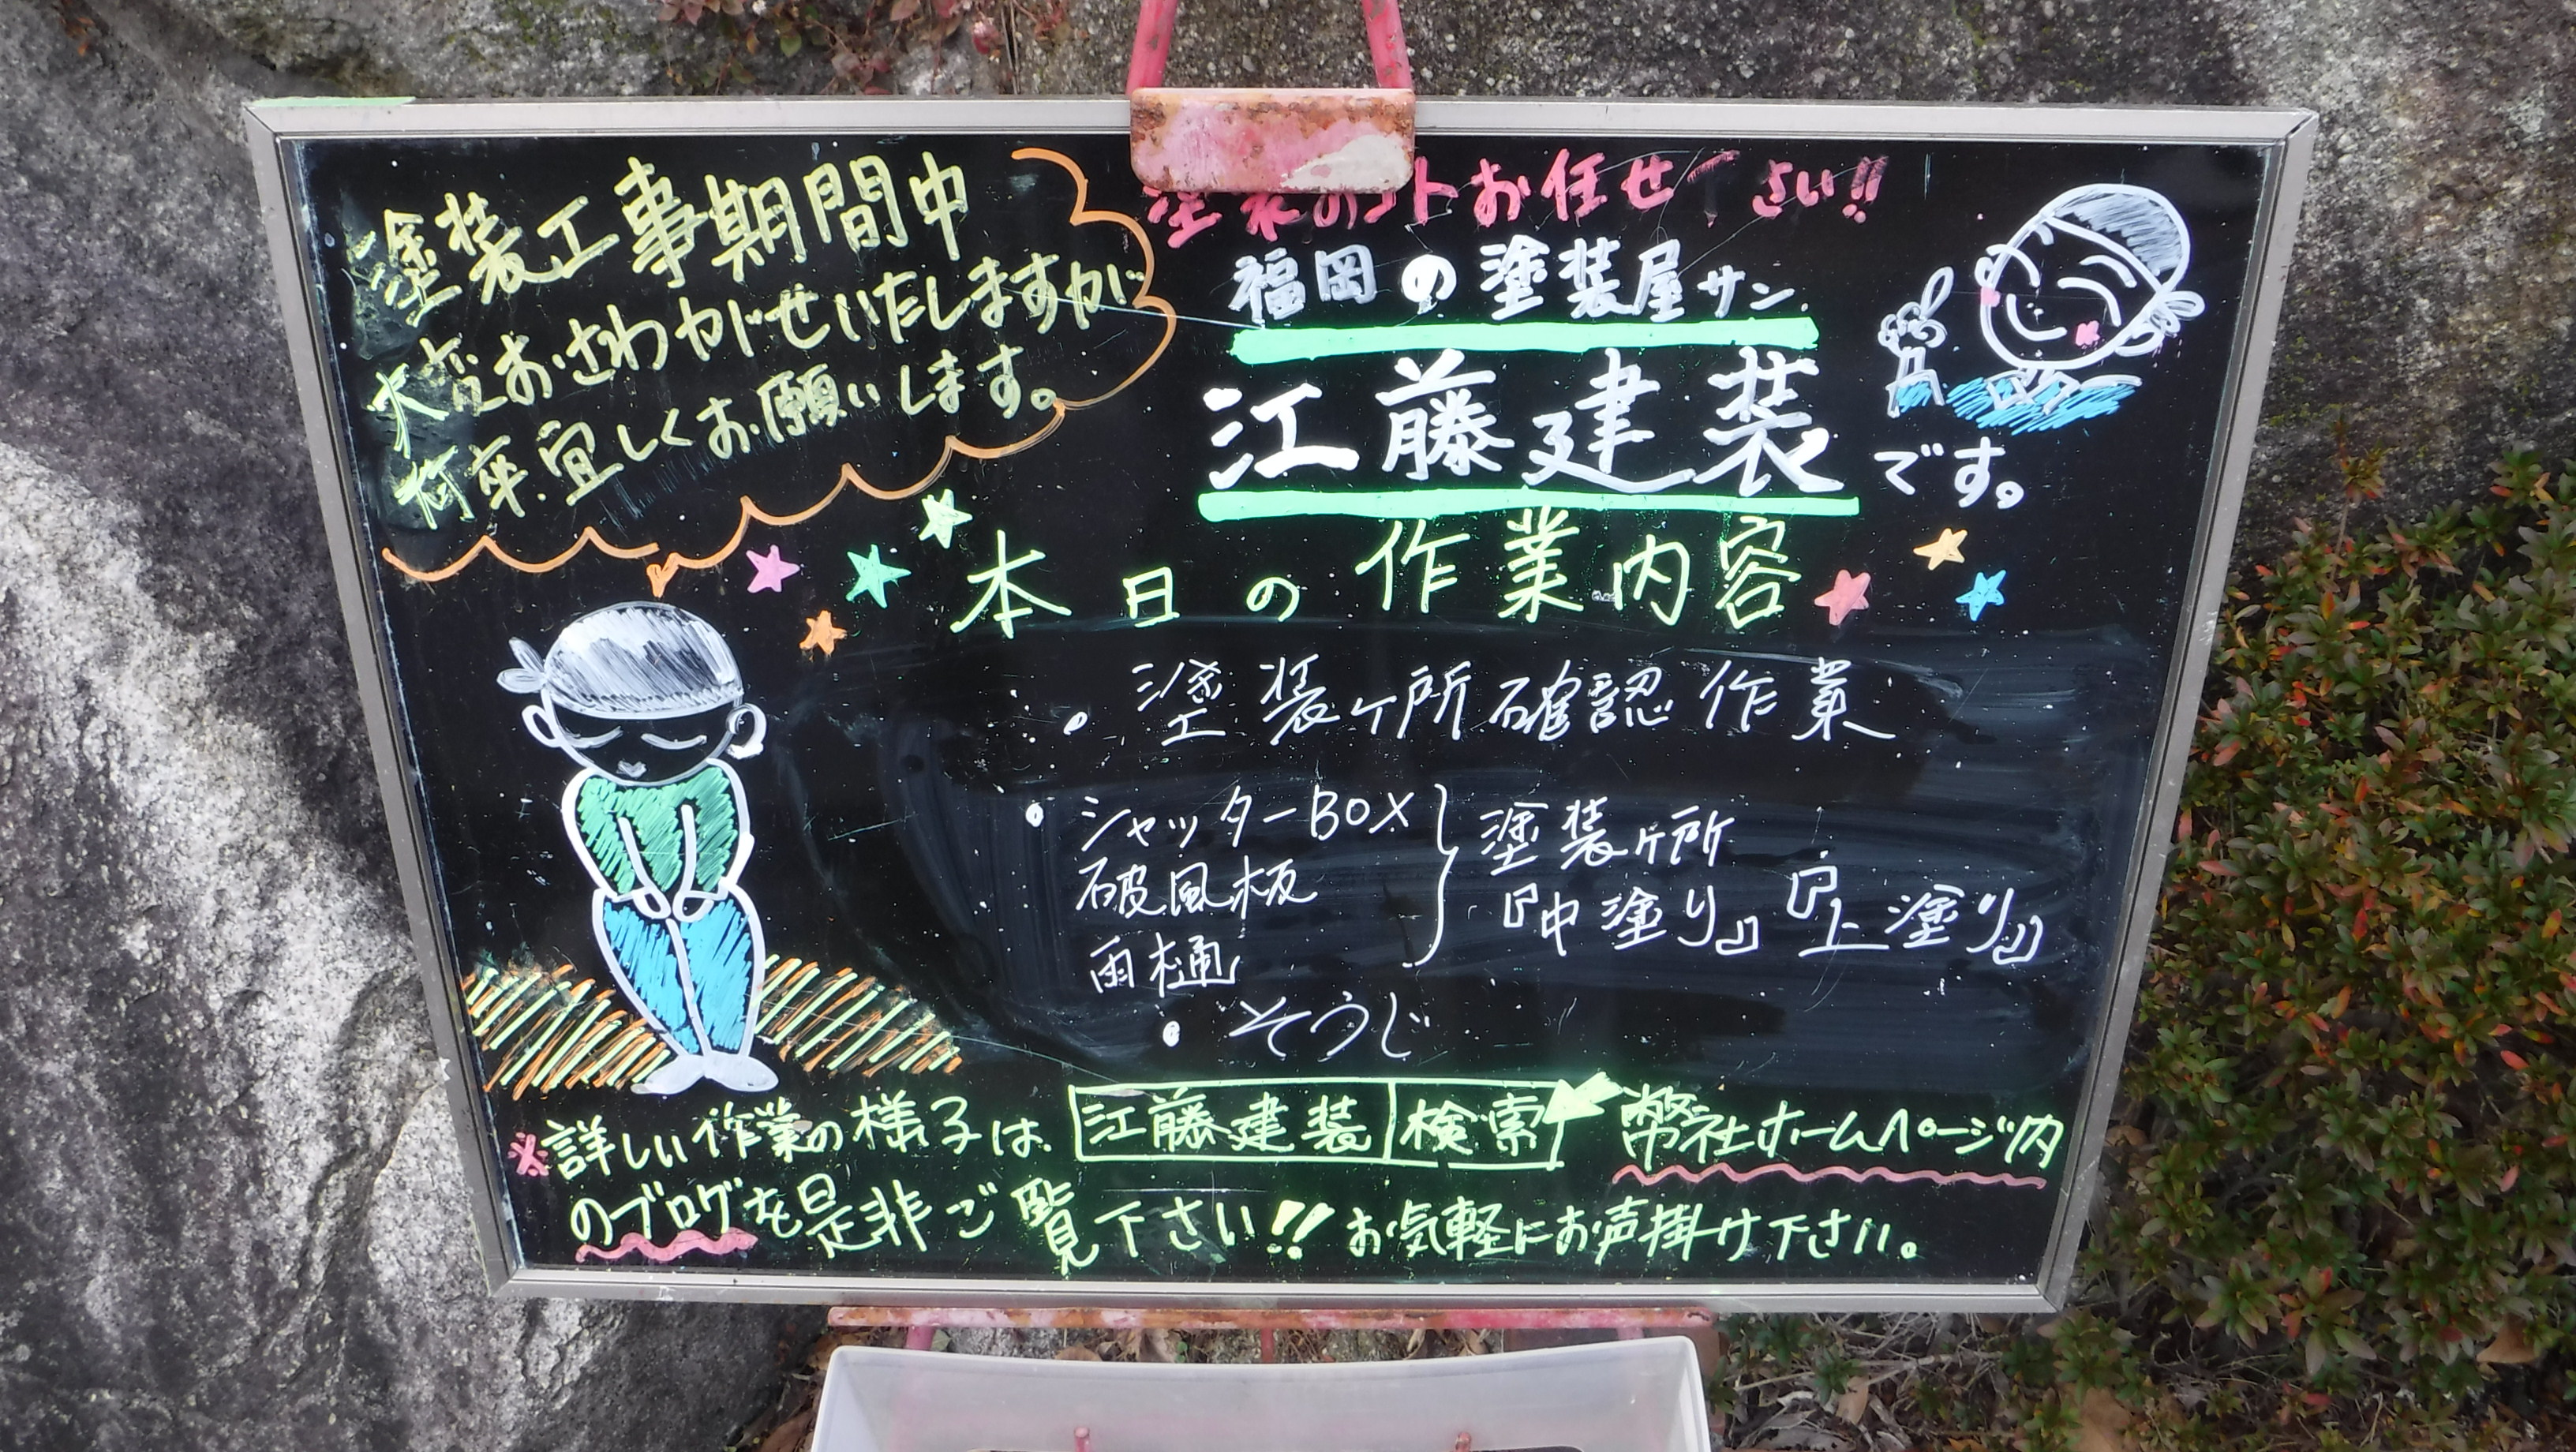 塗装工事期間中
大変おさわがせいたしますが
何卒宜しくお願いします。
お任せ さい!!
福岡の塗装屋サン
江藤建装です。
本日の作業内容
・塗装ヶ所確認作業
・シャッターBOX
破風板
雨樋
塗装ヶ所
『中塗り』『上塗り』
・そうじ
※詳しい作業の様子は 江藤建装 検索 弊社ホームページ内
のブログを是非ご覧下さい!! お気軽にお声掛け下さい。